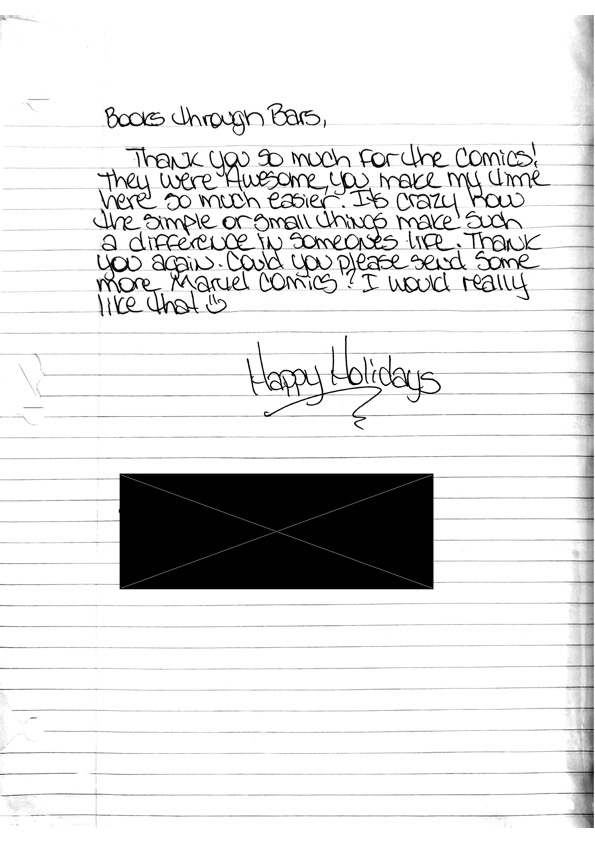 Books through Bars,
Thank you so much for the Comics!
They were Awesome, you make my time
here so much easier. It's crazy how
the simple or small things make such
a difference in someones life. Thank
you again. Could you please send some
more "Marvel Comics"? I would really
like that ☺
Happy Holidays